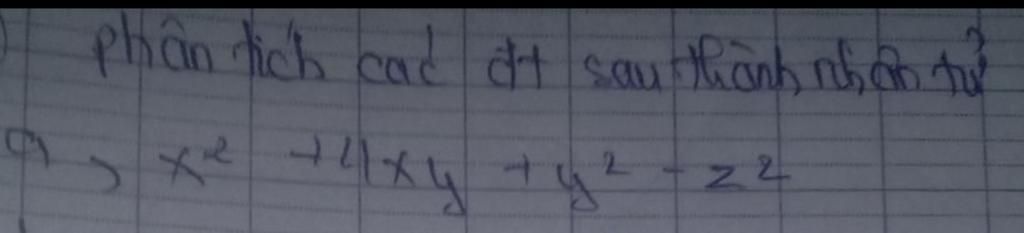 ) phân tích các đt sau thành nhân tử
a, x² + 4xy + y² - z²